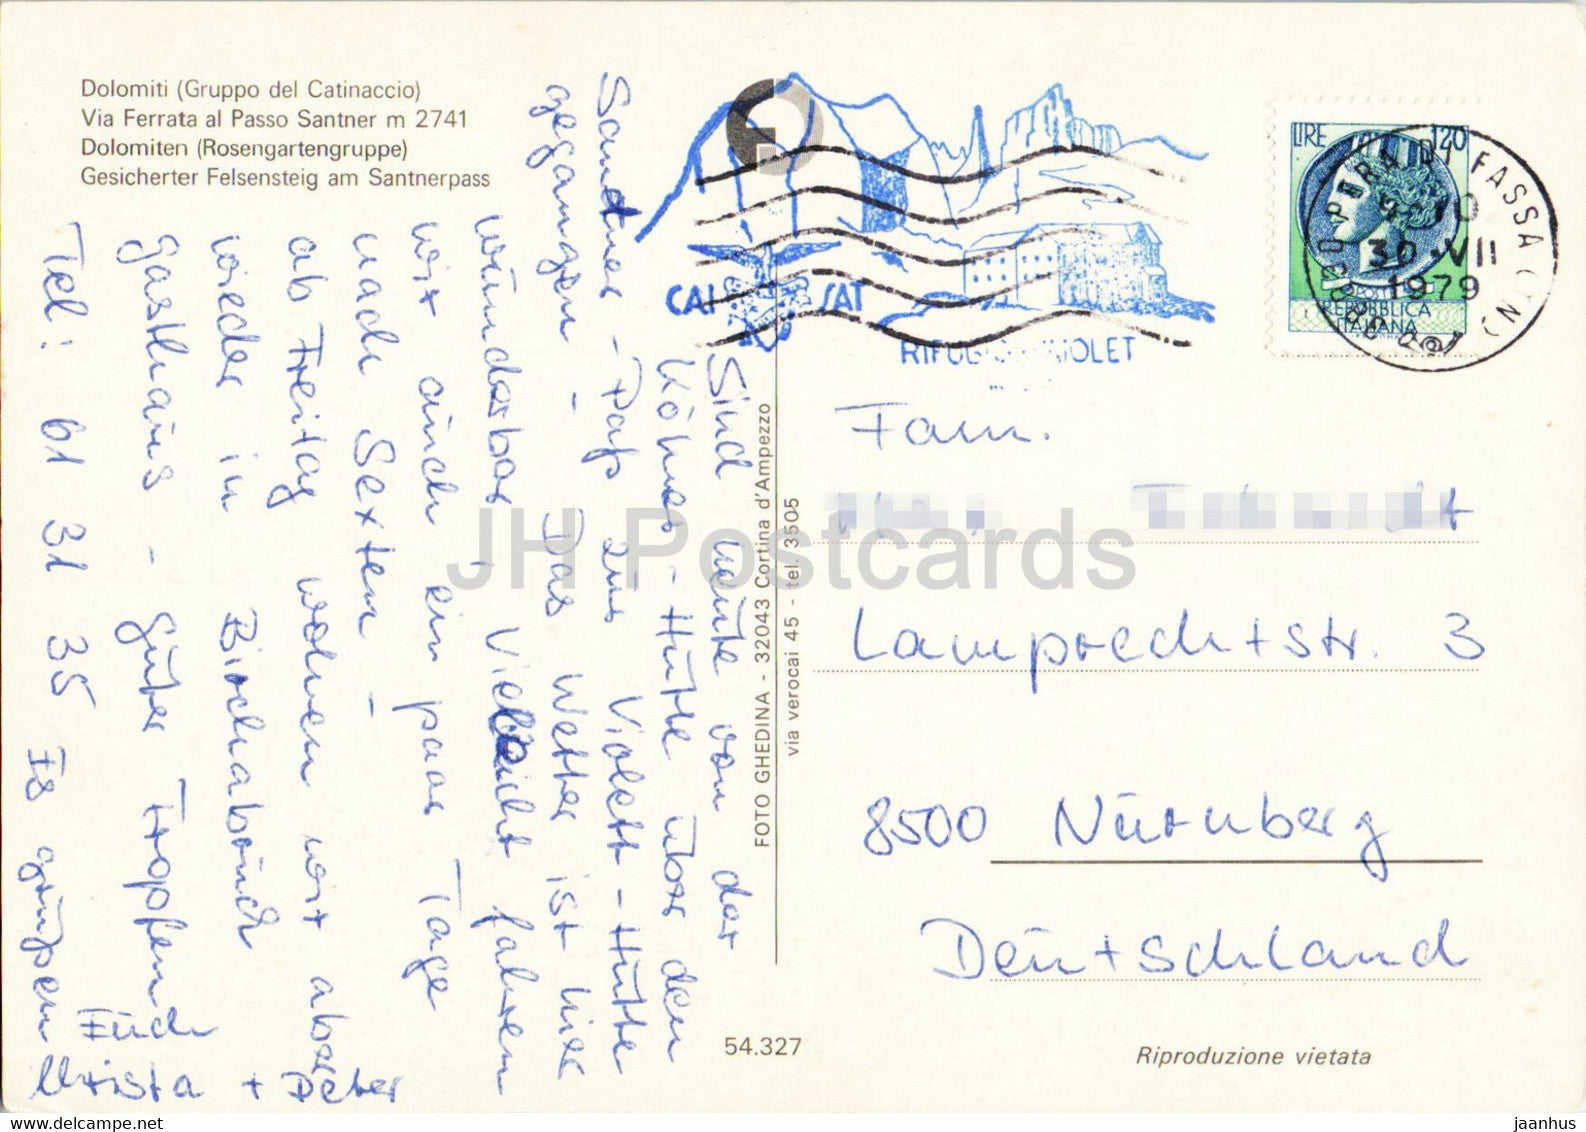 Dolomiti (Gruppo del Catinaccio)
Via Ferrata al Passo Santner m 2741
Dolomiten (Rosengartengruppe)
Gesicherter Felsensteig am Santnerpass
Sind heute von der
Kölner-Hütte über den
Santner-Paß zur Violett-Hütte
gegangen - Das Wetter ist hier
wunderbar, Vielleicht fahren
wir auch ein paar Tage
nach Sexten -
ab Freitag wohnen wir aber
wieder in Birchabruck
Gasthaus - Guter Tropfen
Tel: 61 31 35 Es grüßen
Euch
Christa + Peter
FOTO GHEDINA - 32043 Cortina d'Ampezzo
via verocai 45 - tel. 3505
CAI SAT
LIRE 120
POSTE
REPUBBLICA
ITALIANA
POZZA DI FASSA (TN)
30·VII
1979
Fam.
Lamprechtstr. 3
8500 Nürnberg
Deutschland
54.327
Riproduzione vietata
JH Postcards
www.delcampe.net
jaanhus